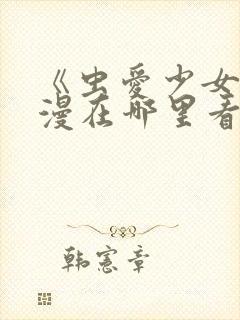 《虫爱少女
漫在哪里看
韩宪章